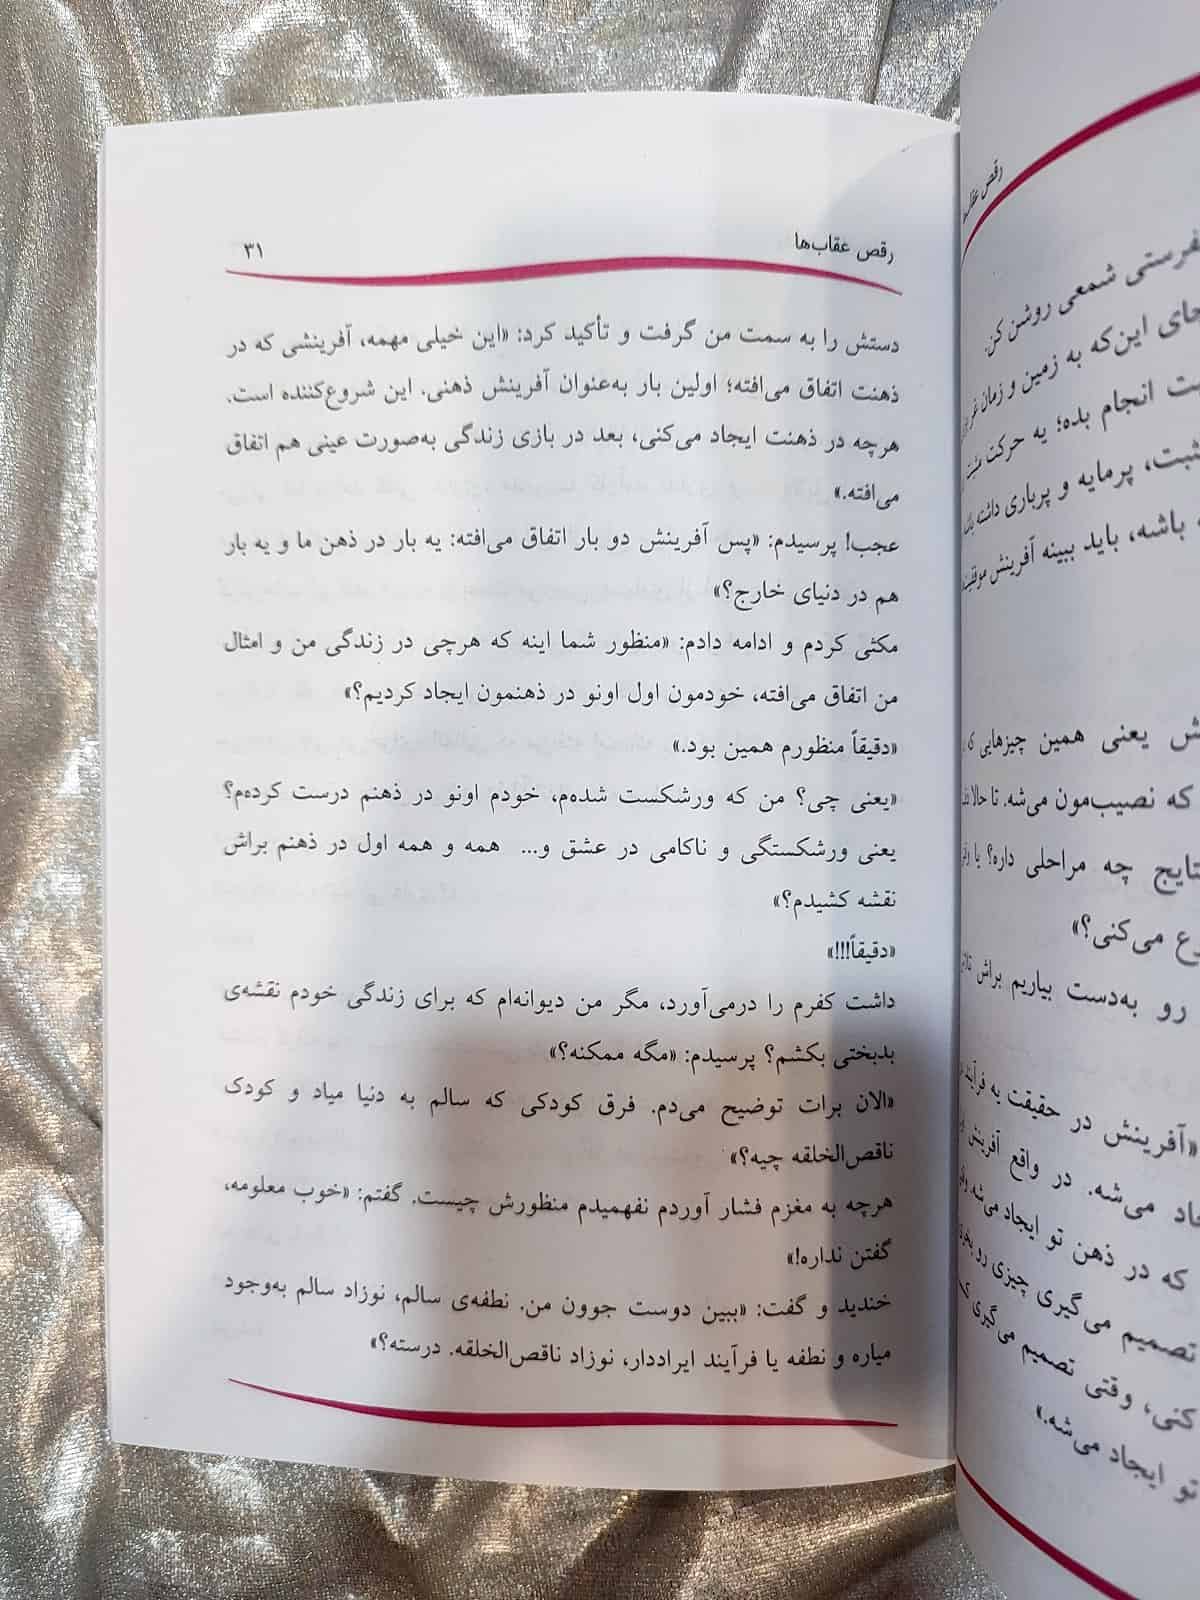 رقص عقاب‌ها ۳۱
دستش را به سمت من گرفت و تأکید کرد: «این خیلی مهمه، آفرینشی که در
ذهنت اتفاق می‌افته؛ اولین بار به‌عنوان آفرینش ذهنی. این شروع‌کننده است.
هرچه در ذهنت ایجاد می‌کنی، بعد در بازی زندگی به‌صورت عینی هم اتفاق
می‌افته.»
عجب! پرسیدم: «پس آفرینش دو بار اتفاق می‌افته: یه بار در ذهن ما و یه بار
هم در دنیای خارج؟»
مکثی کردم و ادامه دادم: «منظور شما اینه که هرچی در زندگی من و امثال
من اتفاق می‌افته، خودمون اول اونو در ذهنمون ایجاد کردیم؟»
«دقیقاً منظورم همین بود.»
«یعنی چی؟ من که ورشکست شده‌م، خودم اونو در ذهنم درست کرده‌م؟
یعنی ورشکستگی و ناکامی در عشق و... همه و همه اول در ذهنم براش
نقشه کشیدم؟»
«دقیقاً!!!»
داشت کفرم را درمی‌آورد، مگر من دیوانه‌ام که برای زندگی خودم نقشه‌ی
بدبختی بکشم؟ پرسیدم: «مگه ممکنه؟»
«الان برات توضیح می‌دم. فرق کودکی که سالم به دنیا میاد و کودک
ناقص‌الخلقه چیه؟»
هرچه به مغزم فشار آوردم نفهمیدم منظورش چیست. گفتم: «خوب معلومه،
گفتن نداره!»
خندید و گفت: «ببین دوست جوون من. نطفه‌ی سالم، نوزاد سالم به‌وجود
میاره و نطفه یا فرآیند ایراددار، نوزاد ناقص‌الخلقه. درسته؟»
رقص
شمعی روشن کن.
این‌که به زمین و زمان
انجام بده؛ یه حرکت مثبت
پرمایه و پرباری داشته
باشه، باید ببینه آفرینش
یعنی همین چیزهایی که
که نصیب‌مون می‌شه. تا حالا
چه مراحلی داره؟ یا
می‌کنی؟»
رو به‌دست بیاریم براش
«آفرینش در حقیقت یه فرآیند
می‌شه. در واقع آفرینش
که در ذهن تو ایجاد می‌شه
تصمیم می‌گیری چیزی رو
کنی، وقتی تصمیم می‌گیری
تو ایجاد می‌شه.»